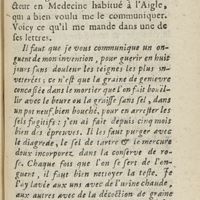 cteur en Medecine habitué à l'Aigle,
qui a bien voulu me le communiquer.
Voicy ce qu'il me mande dans une de
ses lettres.
Il faut que je vous communique un on-
guent de mon invention, pour guerir en huit
jours sans douleur les teignes les plus in-
veterées ; ce n'est que la graine de genievre
concassée dans le mortier que l'on fait bouil-
lir avec le beure ou la graisse sans sel, dans
un pot neuf bien bouché, pour en arrester les
sels fugitifs : j'en ai fait depuis cinq mois
bien des épreuves. Il les faut purger avec
le diagrede, le sel de tartre & le mercure
doux incorporez, dans la conserve de ro-
se. Chaque fois que l'on se sert de l'on-
guent, il faut bien nettoyer la teste. Je
l'ay lavée aux uns avec de l'urine chaude,
aux autres avec de la décoction de graine